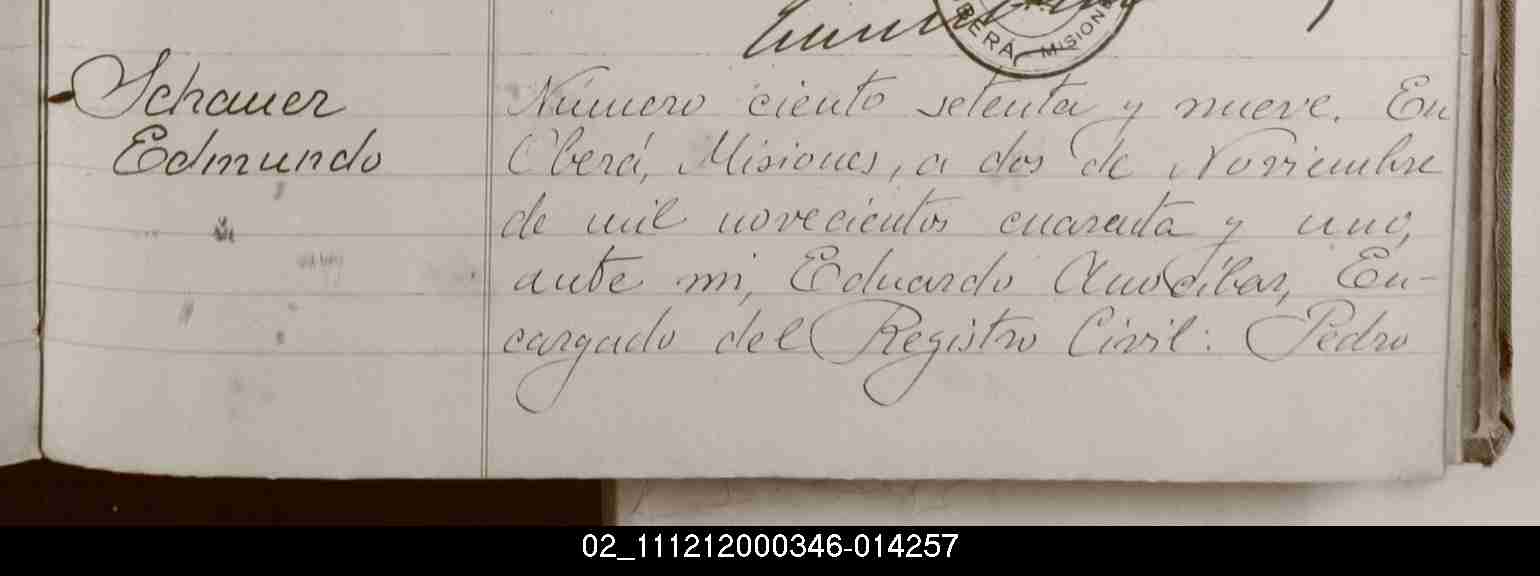 OBERÁ MISIONE
Schauer
Edmundo
Número ciento setenta y nueve. En
Oberá, Misiones, a dos de Noviembre
de mil novecientos cuarenta y uno,
ante mi, Eduardo Anocíbar, En-
cargado del Registro Civil: Pedro
02_111212000346-014257